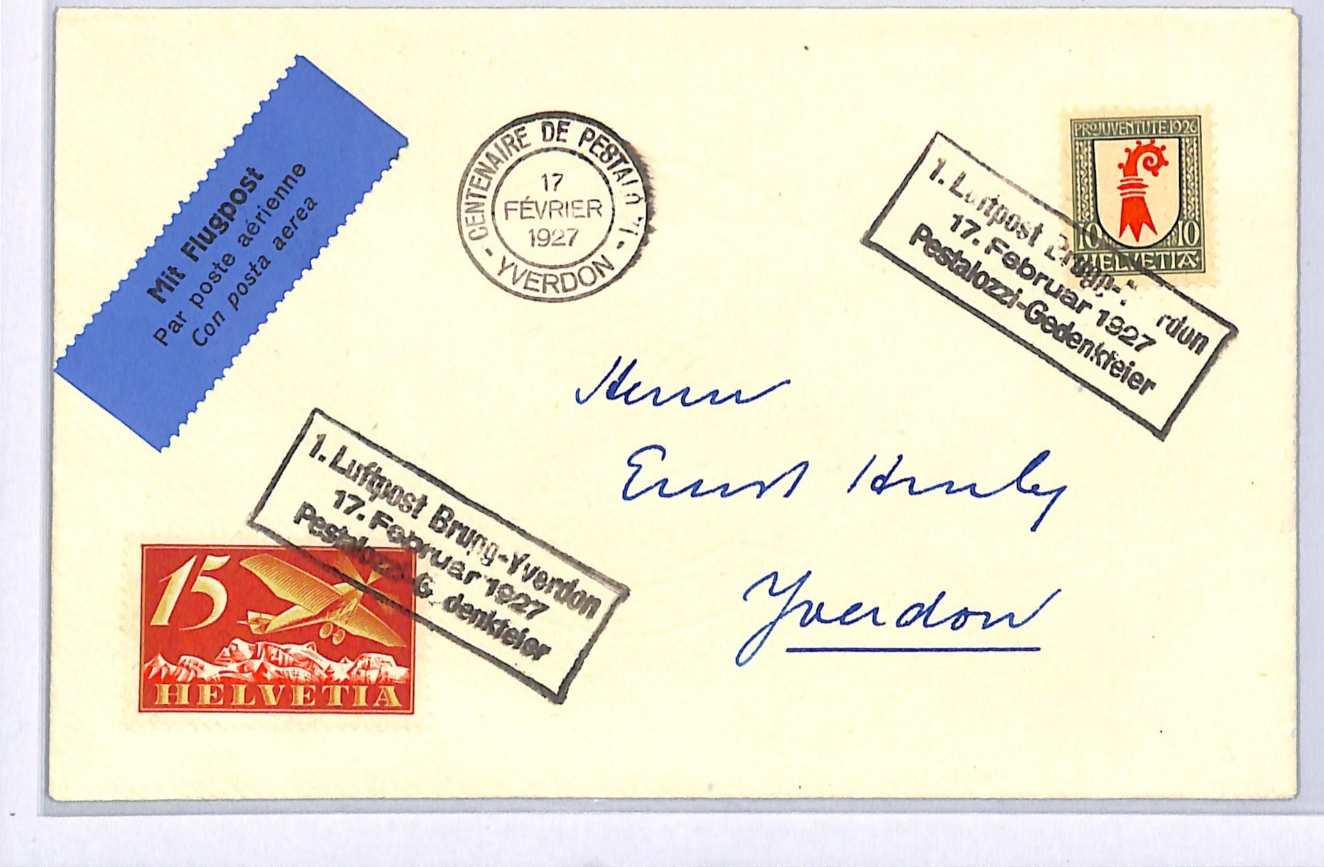 Mit Flugpost
Par poste aérienne
Con posta aerea
CENTENAIRE DE PESTALOZZI
17
FÉVRIER
1927
- YVERDON -
PRO JUVENTUTE 1926
10 10
HELVETIA
1. Luftpost Brugg-Yverdon
17. Februar 1927
Pestalozzi-Gedenkfeier
Herrn
Ernst
Yverdon
1. Luftpost Brugg-Yverdon
17. Februar 1927
Pestalozzi-Gedenkfeier
15
HELVETIA